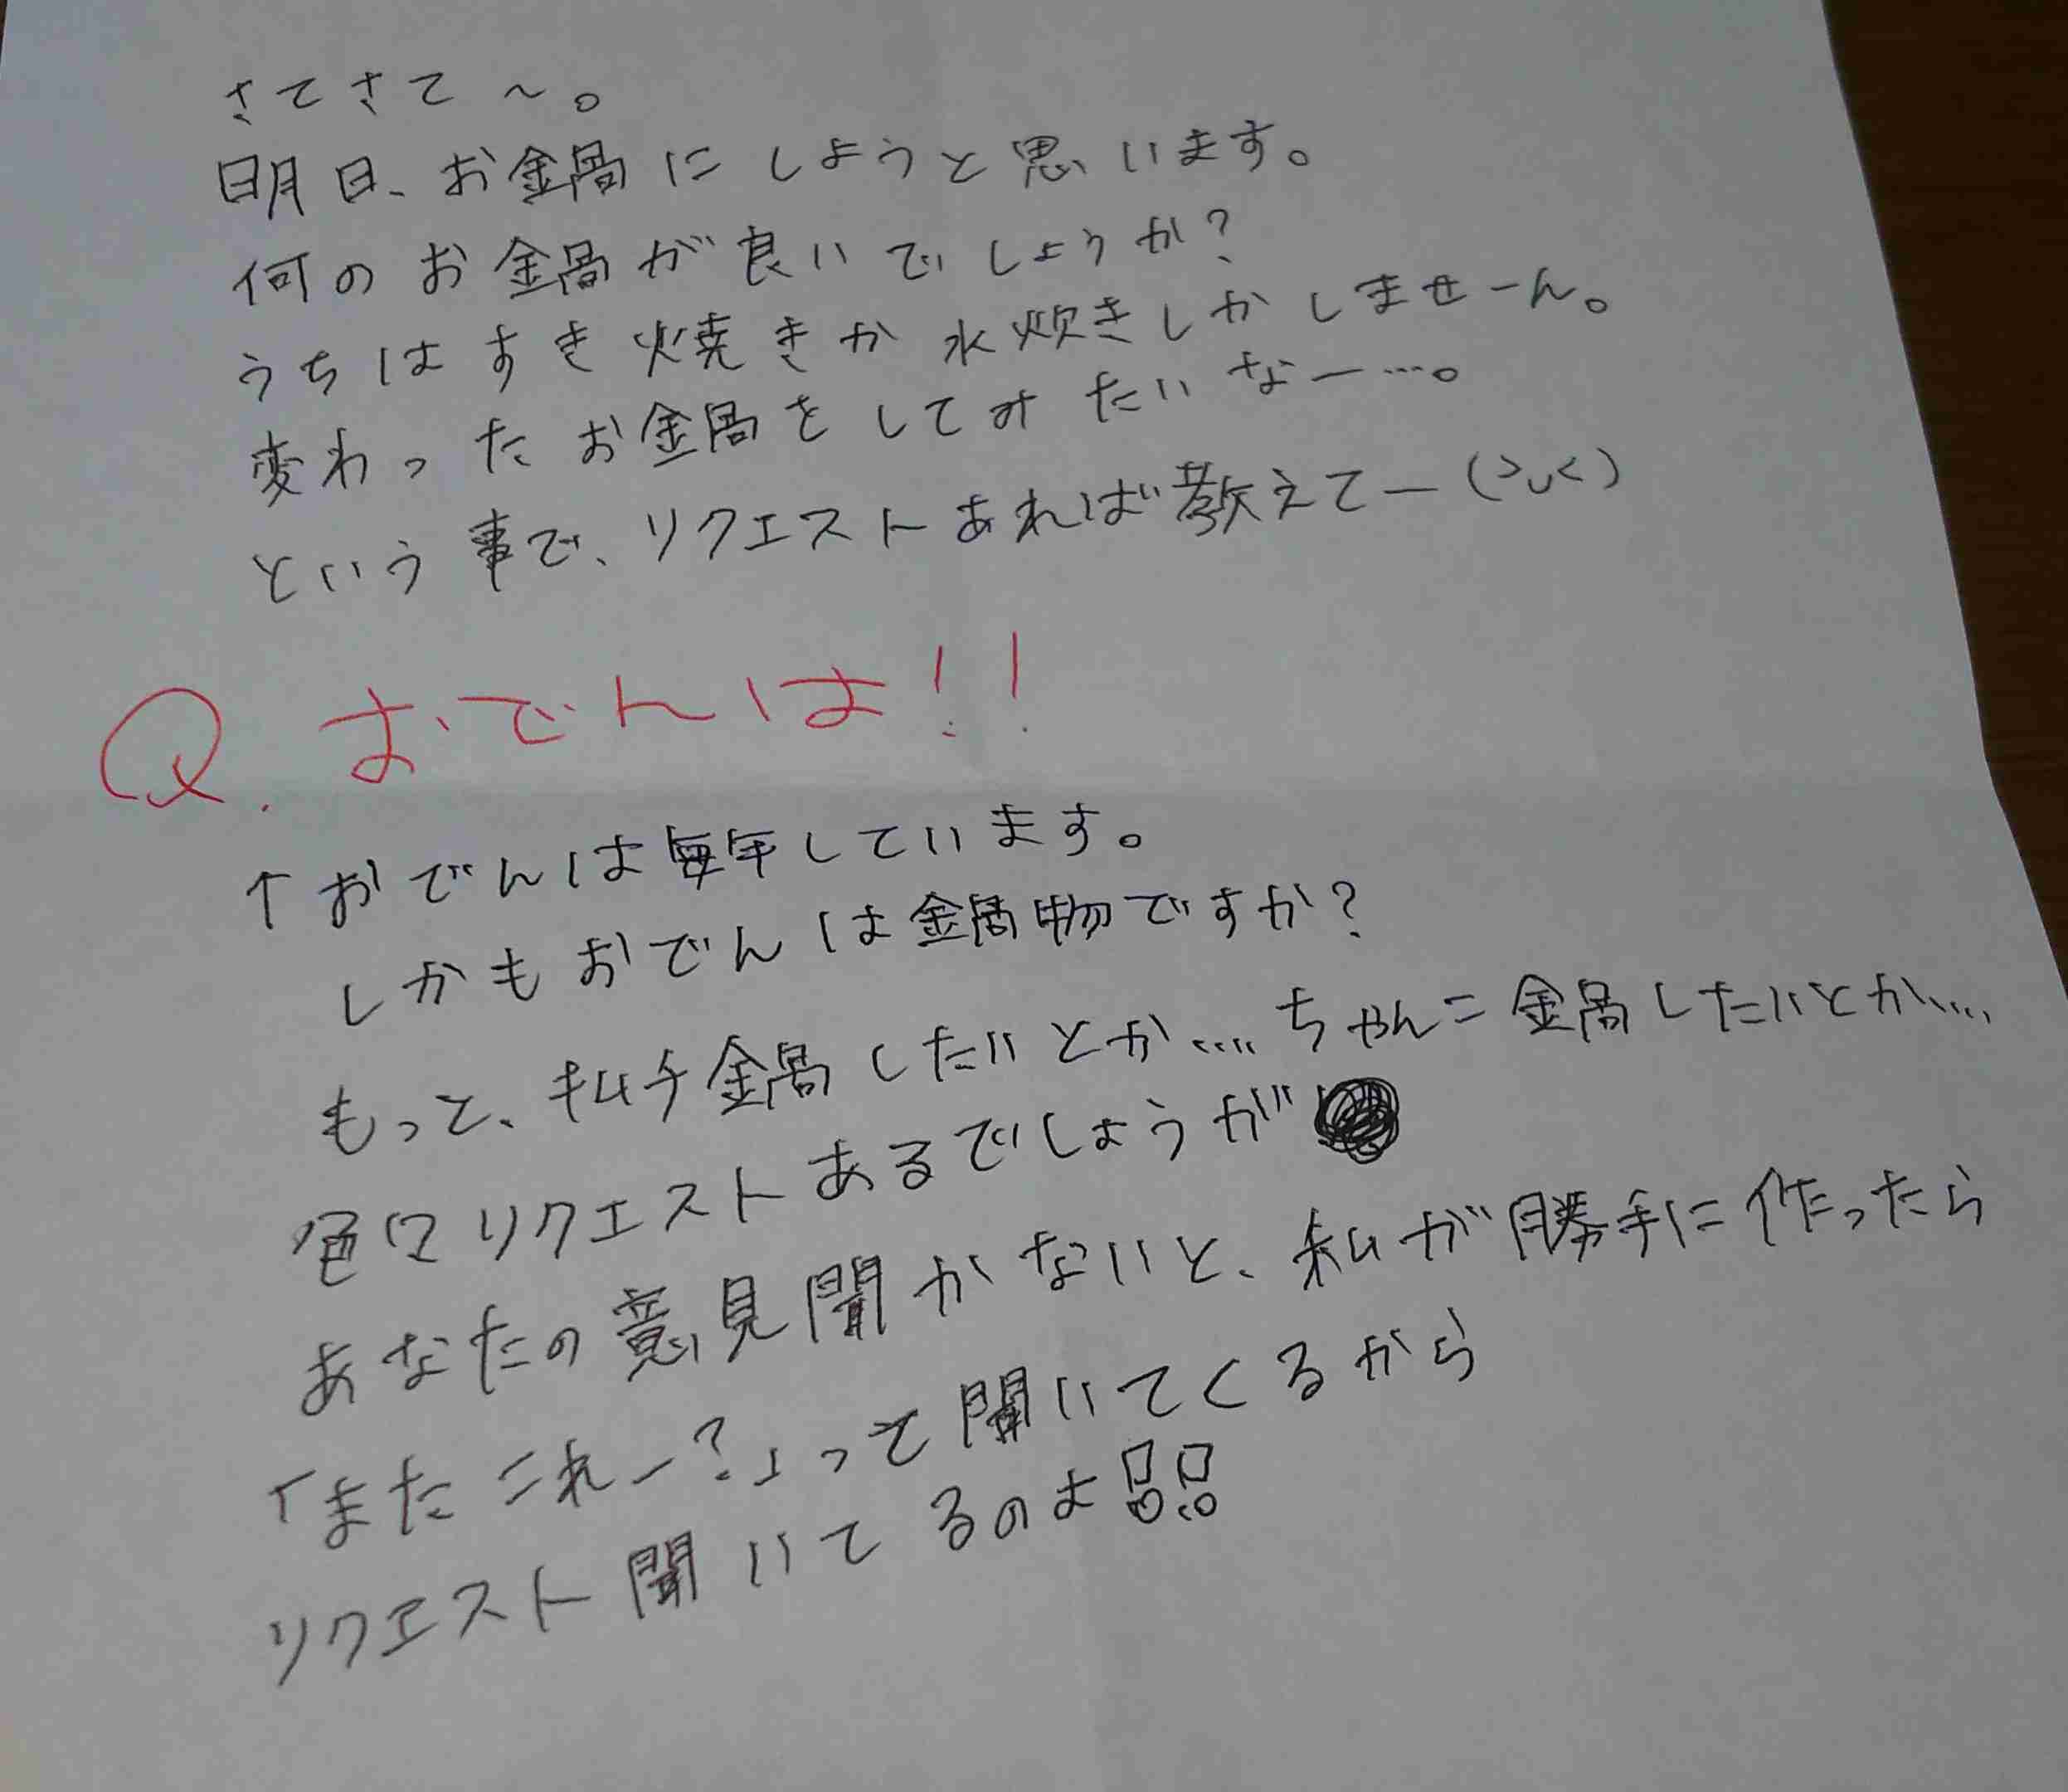 さてさて～。
明日、お鍋にしようと思います。
何のお鍋が良いでしょうか?
うちはすき焼きか水炊きしかしませーん。
変わったお鍋をしてみたいなー…。
という事で、リクエストあれば教えてー(>u<)
Q.おでんは!!
↑おでんは毎年しています。
しかもおでんは鍋物ですか?
もっと、キムチ鍋したいとか….ちゃんこ鍋したいとか…
色々リクエストあるでしょうが
あなたの意見聞かないと、私が勝手に作ったら
「またこれー?」って聞いてくるから
リクエスト聞いてるのよ!!